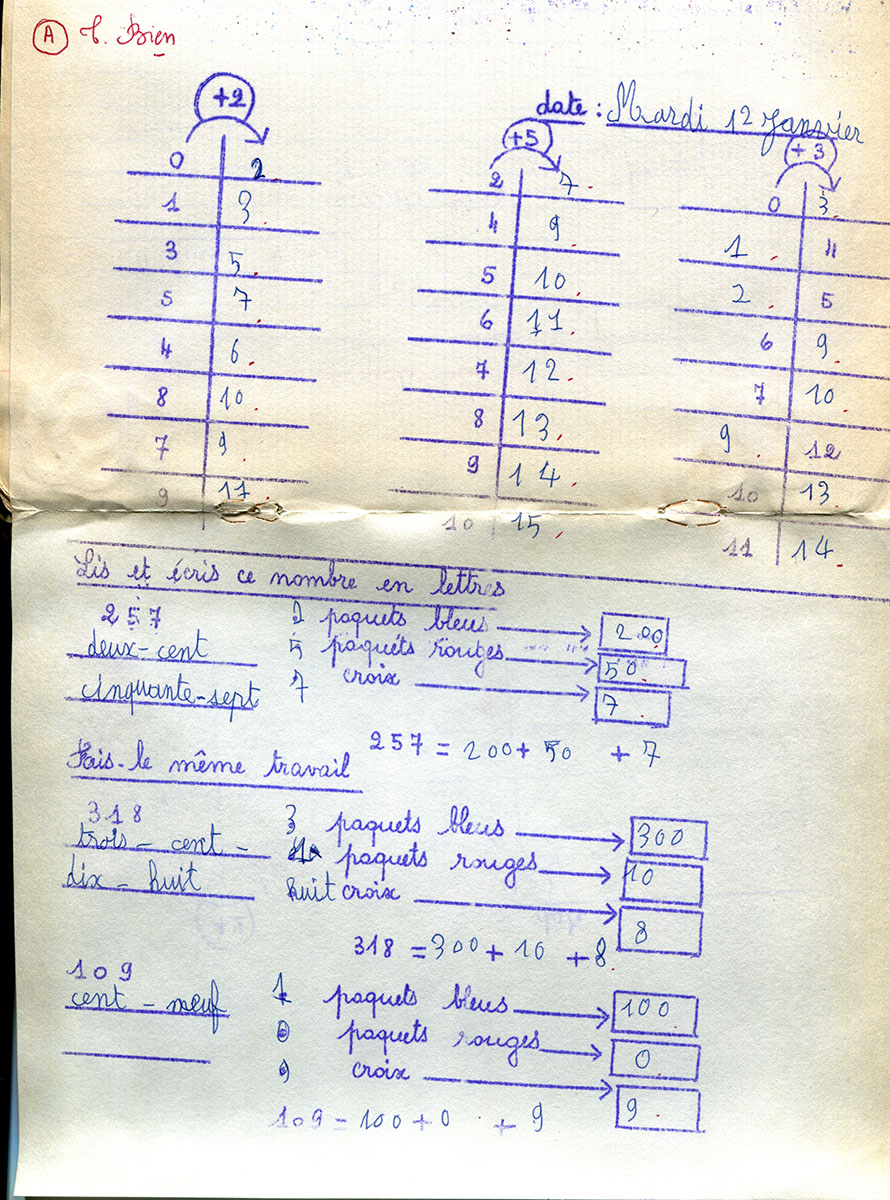 A T. Bien
date : Mardi 12 Janvier
+2
0 2
1 3
3 5
5 7
4 6
8 10
7 9
9 11
+5
2 7
4 9
5 10
6 11
7 12
8 13
9 14
10 15
+3
0 3
1 4
2 5
6 9
7 10
9 12
10 13
11 14
Lis et écris ce nombre en lettres
257 2 paquets bleus 200
deux-cent 5 paquets rouges 50
cinquante-sept 7 croix 7
257 = 200 + 50 + 7
Fais-le même travail
318 3 paquets bleus 300
trois-cent- paquets rouges 10
dix-huit huit croix 8
318 = 300 + 10 + 8
109 1 paquets bleus 100
cent-neuf 0 paquets rouges 0
9 croix 9
109 = 100 + 0 + 9